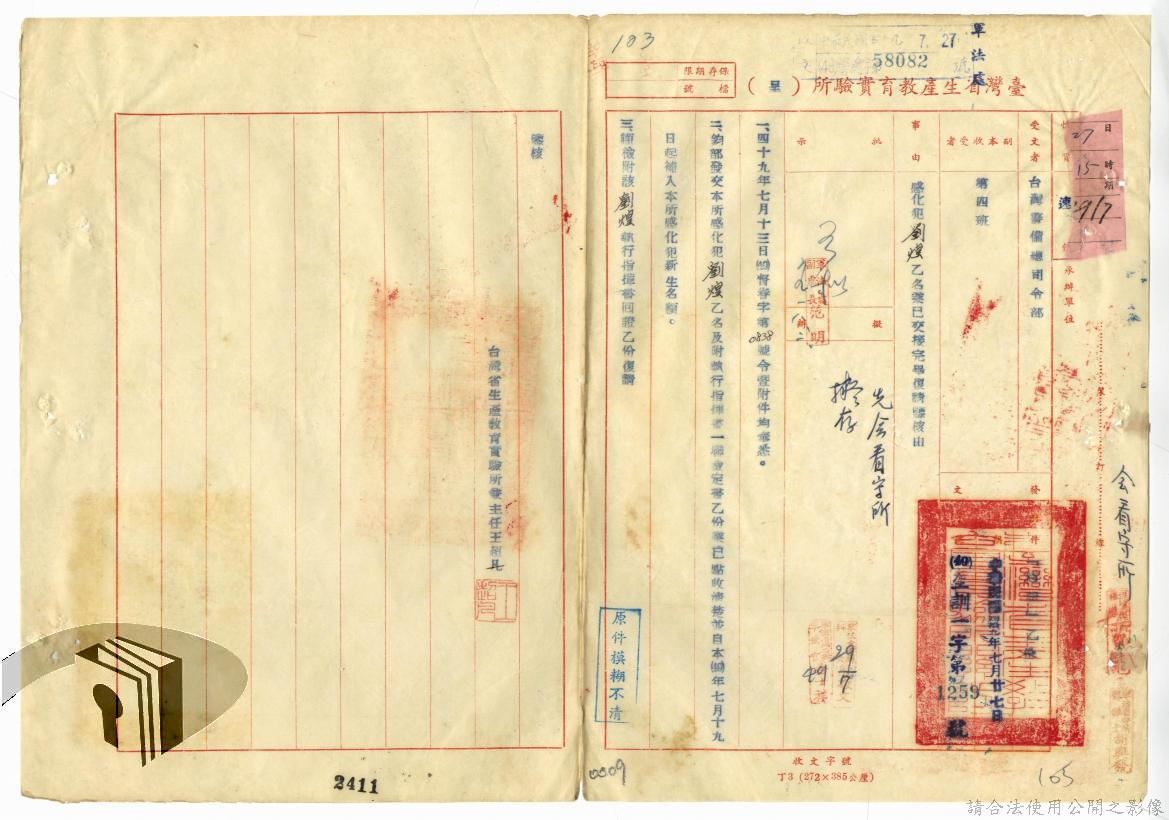 103
7. 27
58082 號
軍法處
保存期限
檔號
臺灣省生產教育實驗所（呈）
27日
15時
期
29/7
速
受文者
台灣警備總司令部
承辦單位
副本收受者
第四班
事由
感化犯劉煌乙名業已交接完畢復請鑒核由
批示
擬辦
先会看守所
擬存
会看守所
發文
附件
(49)產訓一字第1259號
年七月廿七日
29/7
49
一、四十九年七月十三日(49)督春字第0838號令暨附件均奉悉。
二、鈞部發交本所感化犯劉煌乙名及附執行指揮書一聯會定書乙份業已點收清楚並自本(49)年七月十九
日起補入本所感化犯新生名額。
三、謹檢附該劉煌執行指揮書回證乙份復請
鑒核
台灣省生產教育實驗所主任王
原件模糊不清
收文字號
丁3 (272×385公厘)
0009
105
2411
請合法使用公開之影像